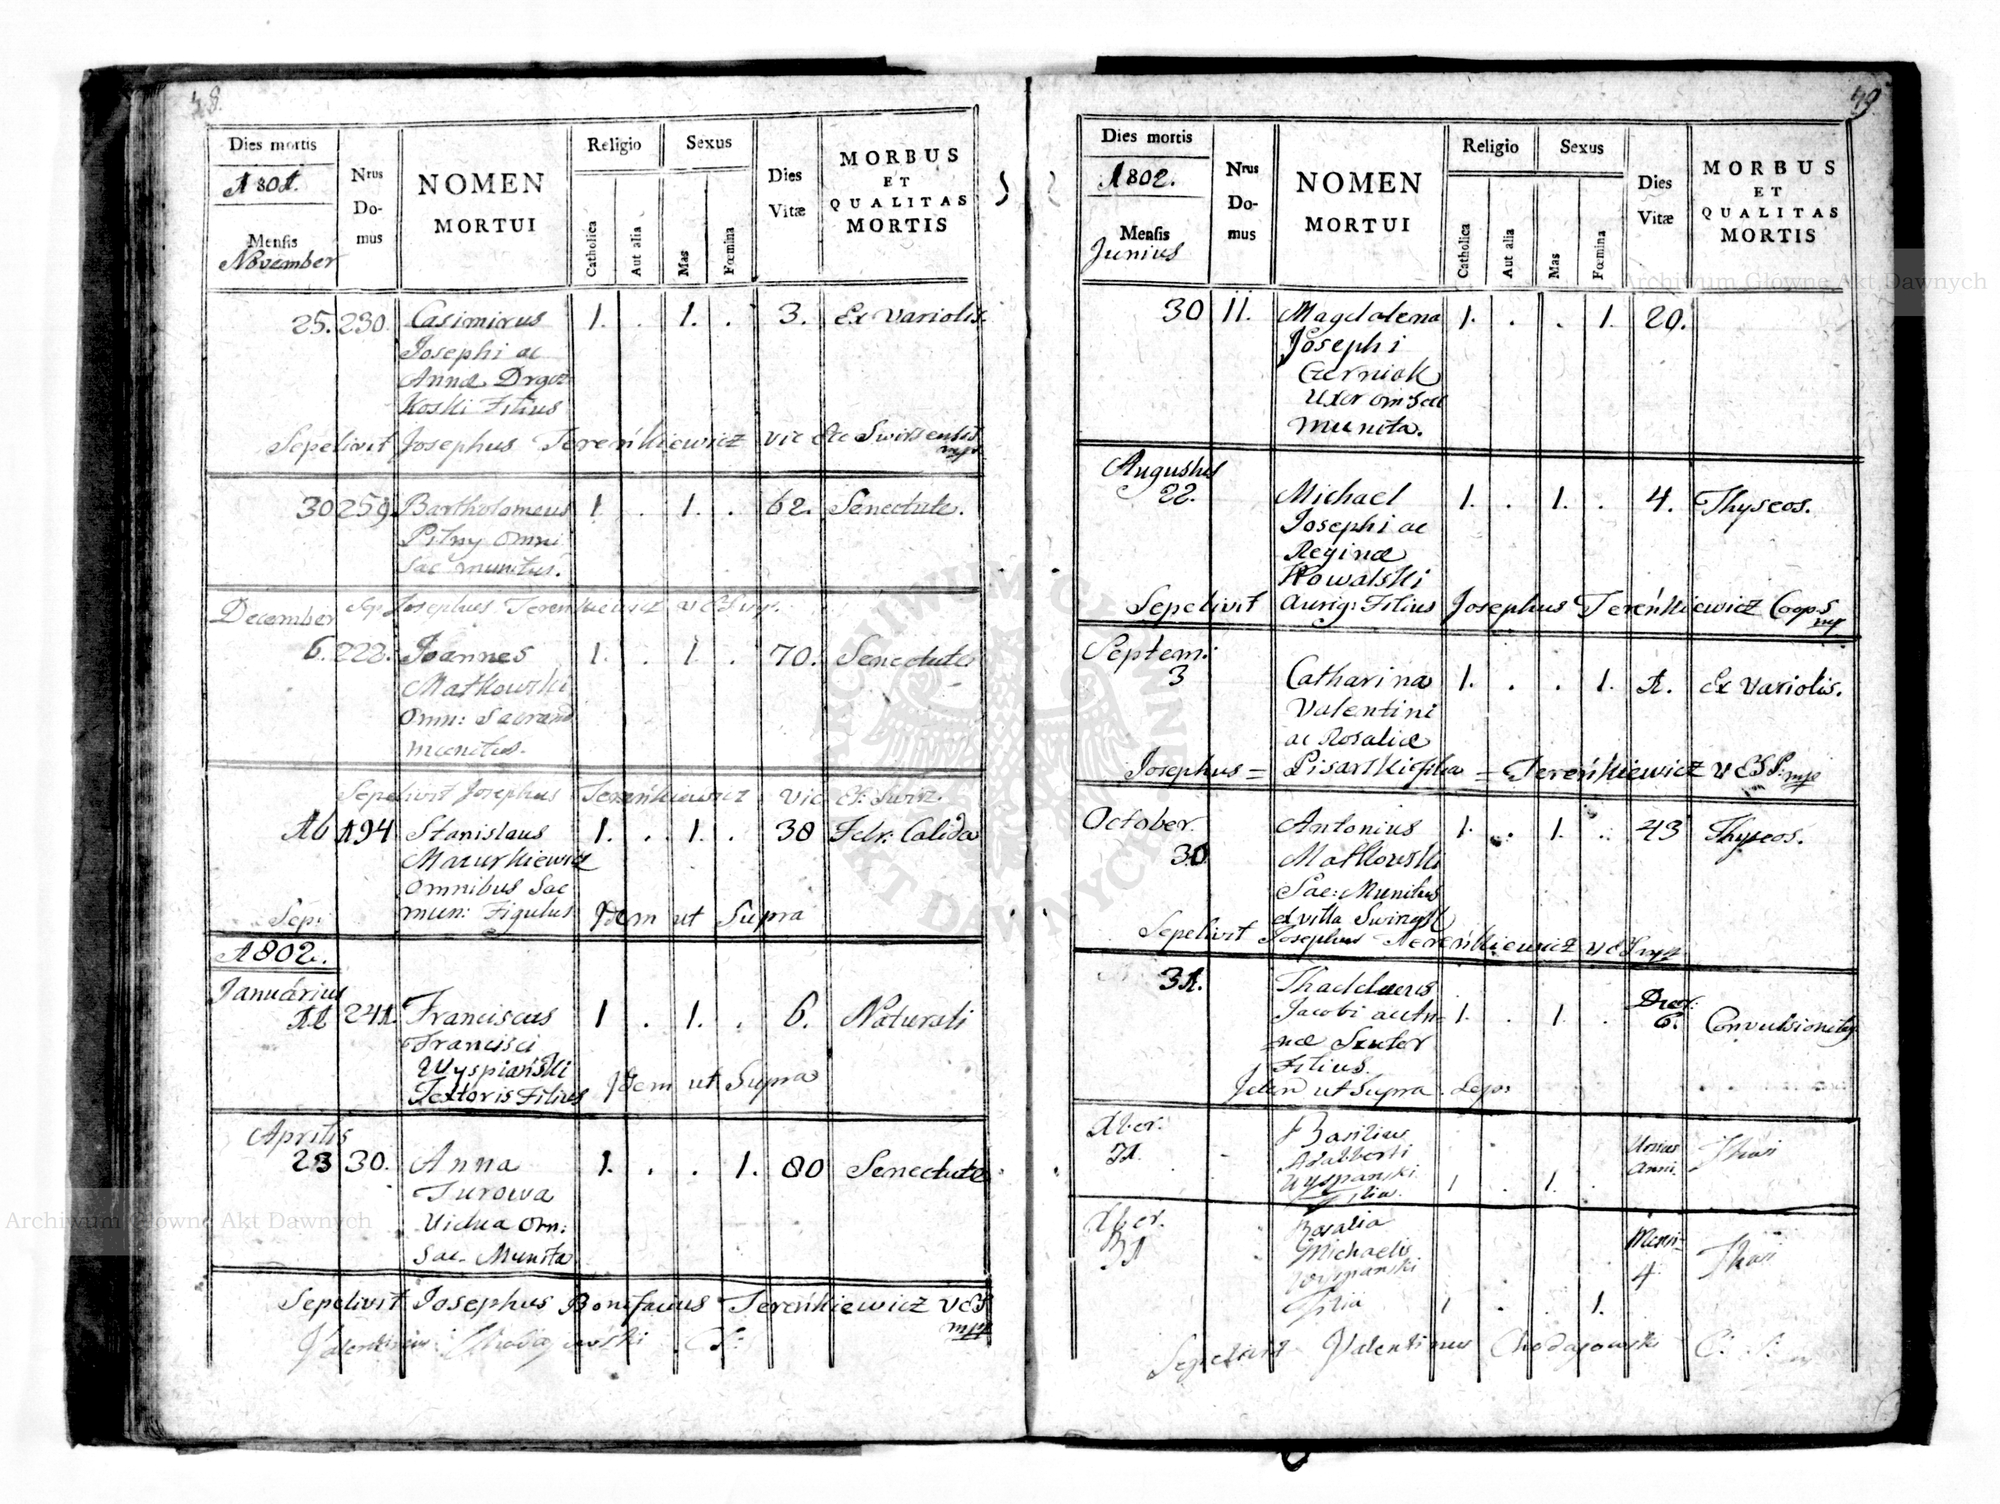 48.
Dies mortis
1801.
Mensis
November
Nrus
Do-
mus
NOMEN
MORTUI
Religio
Catholica
Aut alia
Sexus
Mas
Fœmina
Dies
Vitæ
MORBUS
ET
QUALITAS
MORTIS
25. 230. Casimirus 1. . 1. . 3. Ex Variolis.
Josephi ac
Annæ
Koski Filius
Sepelivit Josephus Tereńkiewicz Vic Ec Swirsensis
mp
30 259. Bartholomeus 1 . 1. . 62. Senectute.
Pilny Omni
Sac munitus.
December
Sep Josephus Tereńkiewicz
6. 222. Joannes 1. . 1. . 70. Senectute
Matkowski
Omn: Sacram
munitus.
Sepelivit Josephus Tereńkiewicz Vic
16 194 Stanislaus 1. . 1. . 38 Febr: Calida
Mazurkiewicz
omnibus Sac
mun: Figulus
Sep: Idem ut Supra
1802.
Januárius
12 241 Franciscus 1 . 1. . 6. Naturali
Francisci
Wyspiański
Textoris Filius
Idem ut Supra
Aprilis
23 30. Anna 1. . . 1. 80 Senectute
Turowa
Vidua Om:
Sac. Munita
Sepelivit Josephus Bonifacius Tereńkiewicz
mpp
Valentinus
49
Dies mortis
1802.
Mensis
Junius
Nrus
Do-
mus
NOMEN
MORTUI
Religio
Catholica
Aut alia
Sexus
Mas
Fœmina
Dies
Vitæ
MORBUS
ET
QUALITAS
MORTIS
30 11. Magdalena 1. . . 1. 20.
Josephi
Czerniak
Uxor om Sac
munita.
Augustus
22. Michael 1. . 1. . 4. Thyseos.
Josephi ac
Reginæ
Kowalski
Aurig: Filius
Sepelivit Josephus Tereńkiewicz Coop.
mp
Septem:
3 Catharina 1. . . 1. 1. Ex Variolis.
Valentini
ac Rosaliæ
Josephus = Pisarski Filia = Tereńkiewicz mp
October.
30 Antonius 1. . 1. . 43 Thyseos.
Matkowski
Sac: Munitus
ex villa
Sepelivit Josephus Tereńkiewicz
31. Thaddæus
Jacobi ac An- 1. . 1. . 6. Convulsionibus
næ Sxuter
Filius.
Idem ut Supra
Xber.
31. Basilius
Adalberti
Wyspanski
Filia. 1 . 1. .
Unius
Anni.
Xber.
31 Rosalia
Michaelis
Wyspanski
Filia 1 . . 1.
Mensi-
4
Sepelivit Valentinus Chodajowski
Archiwum Głowne Akt Dawnych
Archiwum Głowne Akt Dawnych
ARCHIWUM GŁÓWNE AKT DAWNYCH